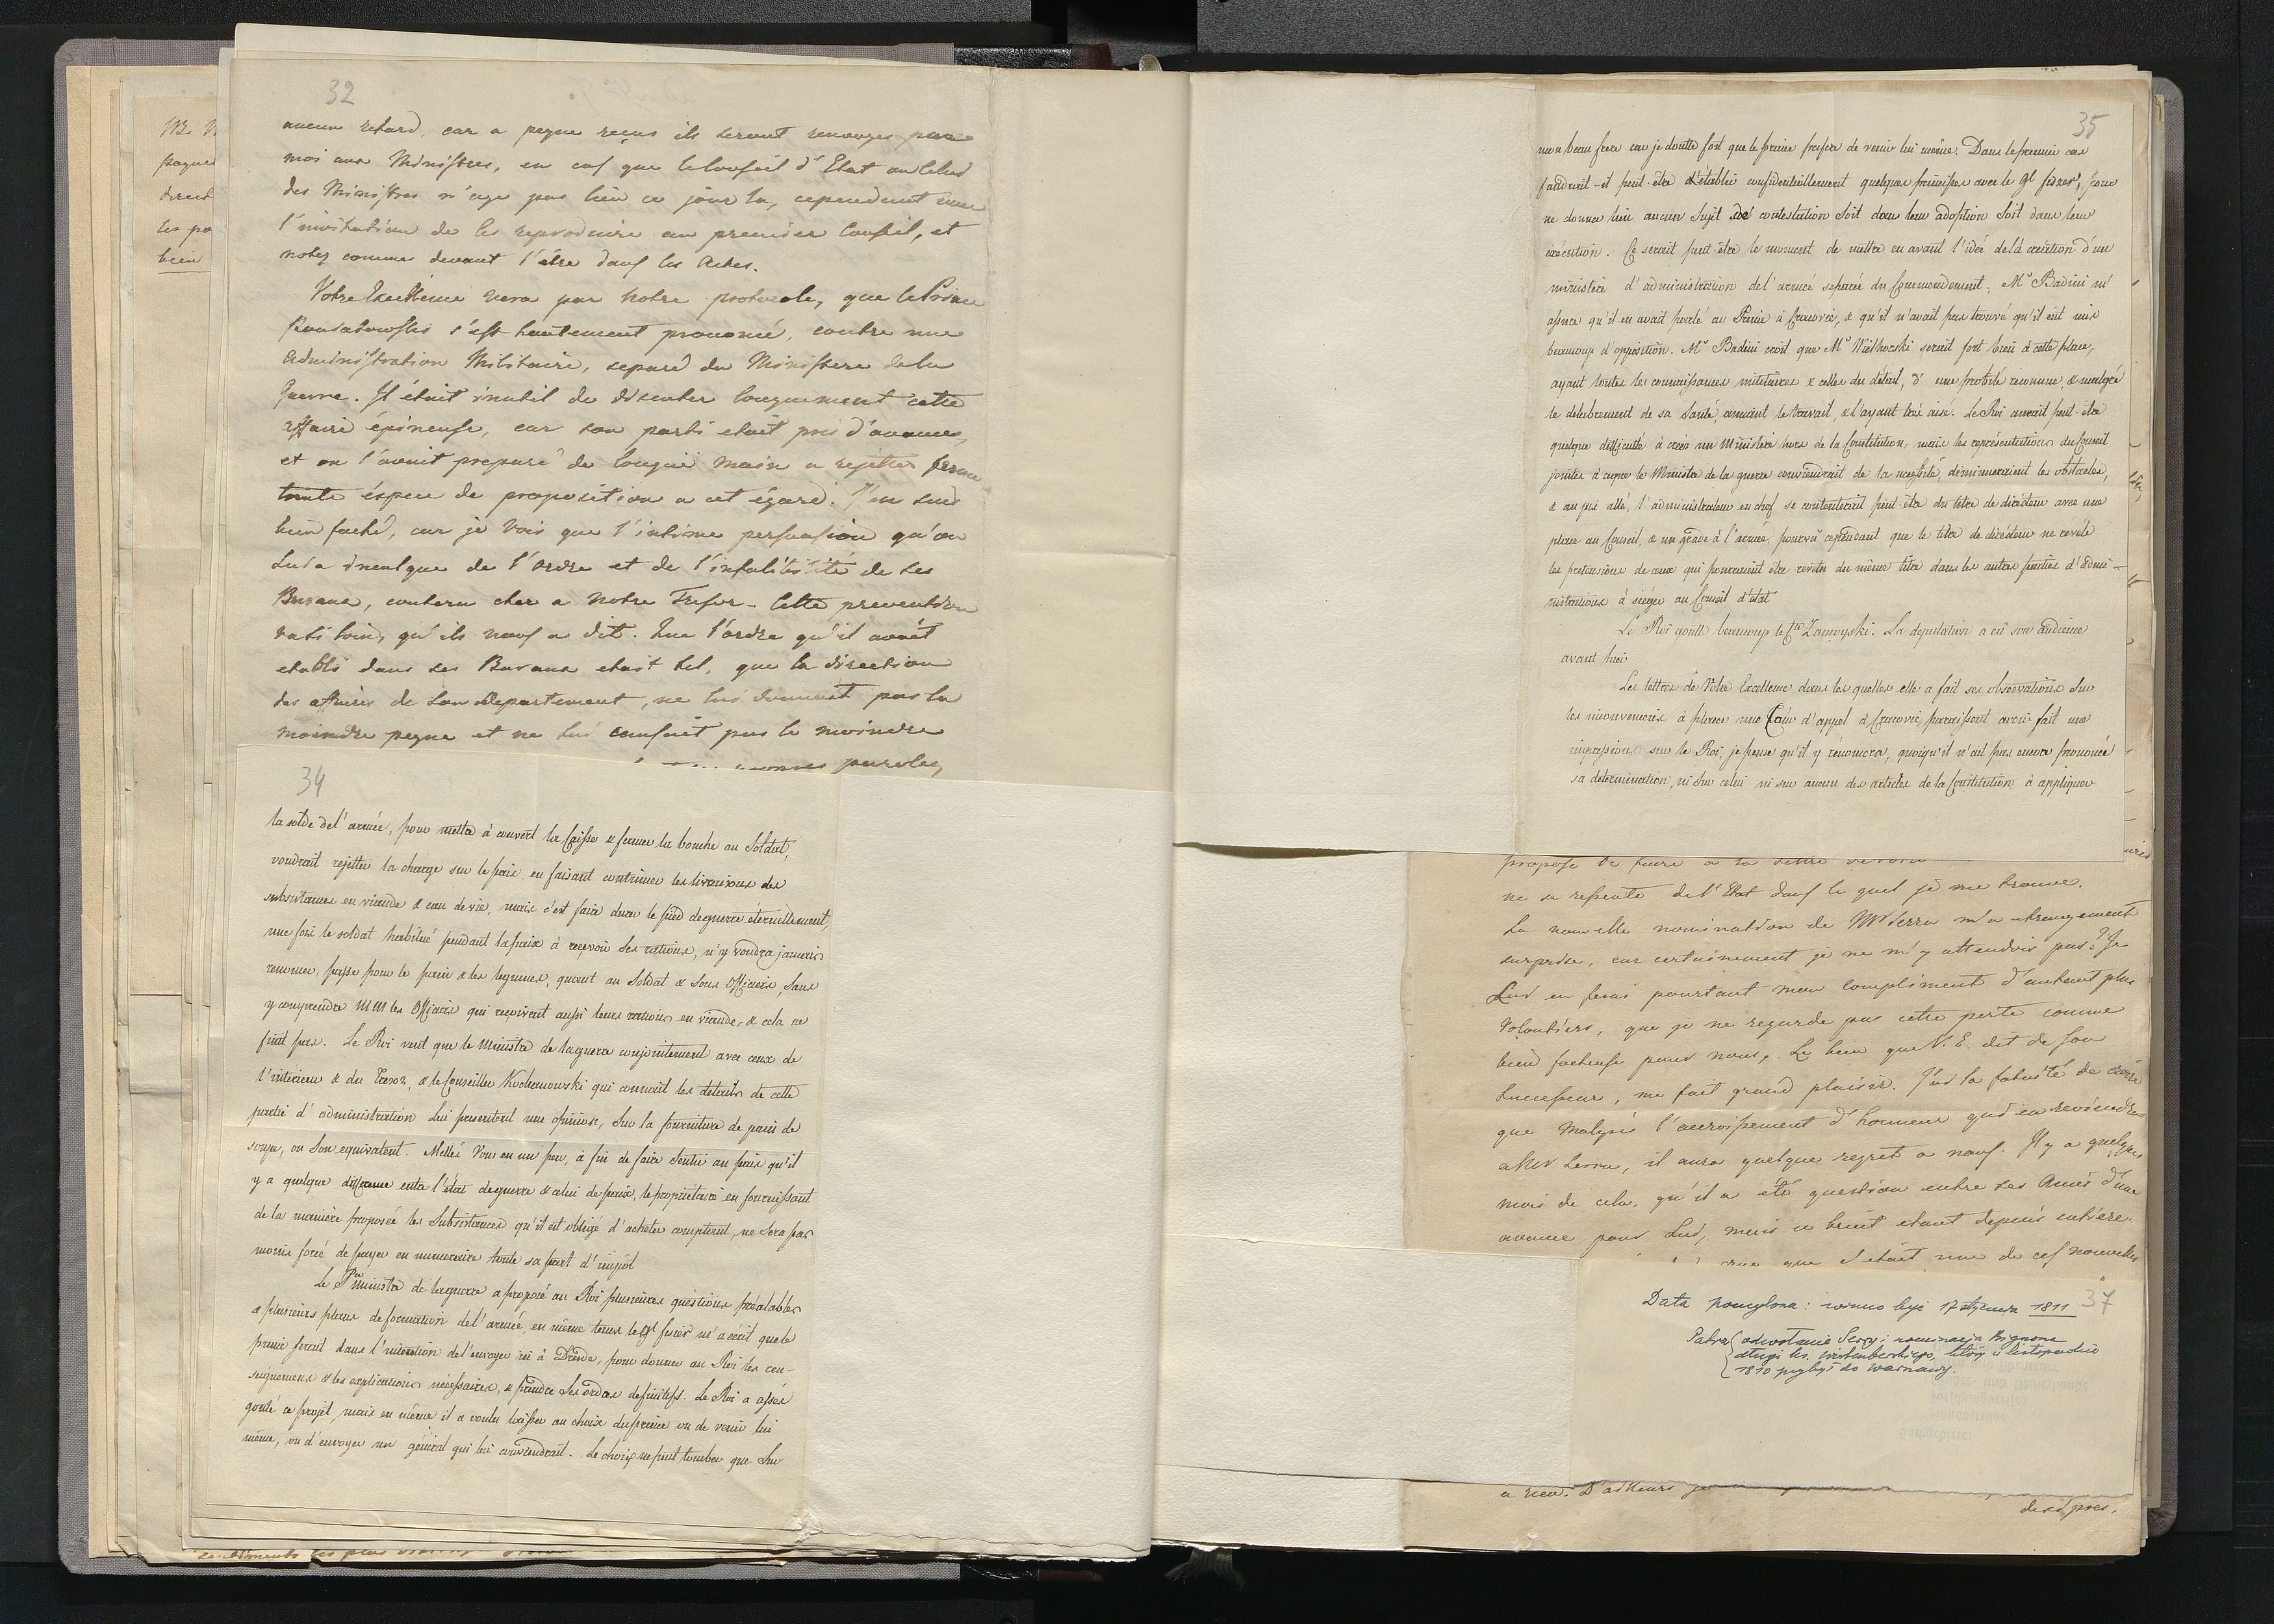 32
aucun retard, car a peyne reçus ils seront renvoyés par
moi aux Ministres, en cas que le Conseil d'Etat ou celui
des Ministres n'aye pas lieu ce jour la, cependant avec
l'invitation de les reproduire au premier Conseil, et
notez comme devant l'être dans les Actes.
Votre Excellence verra par notre protocole, que le Prince
Poniatowski s'est hautement prononcé, contre une
Administration Militaire, separé du Ministere de la
Guerre. Il était inutil de discuter longuement cette
affaire épineuse, car son parti etait pris d'avance,
et on l'avait preparé de longue main a rejetter
toute éspece de proposition a cet égard. J'en suis
bien faché, car je vois que l'intime persuasion qu'on
Lui a inculque de l'ordre et de l'infalibilité de ses
Bureaux, coutera cher a notre Tresor - Cette prevention
va si loin, qu'ils nous a dit. Que l'ordre qu'il avait
etabli dans ses Bureaux etait tel, que la direction
des affaires de son departement, ne lui donnait pas la
moindre peyne et ne lui causait pas le moindre
paroles,
34
la solde de l'armée, pour mettre à couvert la Caisse & fermer la bouche au Soldat,
voudrait rejetter la charge sur le païs, en faisant continuer les livraisons des
subsistances en viande & eau de vie, mais c'est faire durer le pied de guerre éternellement,
une fois le soldat habitué pendant la paix à recevoir ses rations, n'y voudra jamais
renoncer, passe pour le pain & les legumes, quant au Soldat & Sous Officiers, sans
y comprendre MM les Officiers qui reçoivent aussi leurs rations en viande, & cela ne
finit pas. Le Roi veut que le Ministre de la guerre conjointement avec ceux de
l'interieur & du Tresor, & le Conseiller Kochanowski qui connait les details de cette
partie d'administration lui presentent une opinion, sur la fourniture de pain de
soupe, ou son equivalent. Mellés Vous en un peu, à fin de faire sentir au païs qu'il
y a quelque difference entre l'état de guerre & celui de paix, le proprietaire en fournissant
de la manière proposée les Subsistances qu'il est obligé d'acheter comptant, ne sera pas
moins forcé de payer en numeraire toute sa part d'impôt
Le Pce ministre de la guerre a proposé au Roi plusieures questions préalables
& plusieurs plans de formation de l'armée, en même tems le gl fiszer m'a écrit que le
prince serait dans l'intention de l'envoyer ici à Dresde, pour donner au Roi les ren-
seignemens & les explications nécéssaires, & prendre ses ordres definitifs. Le Roi a assés
gouté ce projet, mais en même il a voulu laisser au choix du prince ou de venir lui
même, ou d'envoyer un général qui lui conviendrait. Le choix ne peut tomber que sur
35
mon beau frere car je doutte fort que le prince prefere de venir lui même. Dans le premier cas
faudrait-il peut-être d'établir confidentiellement quelques principes avec le gl fiszer, pour
ne donner lieu aucun sujet de contestation soit dans leur adoption soit dans leur
exécution. Ce serait peut-être le moment de mettre en avant l'idée de la création d'un
ministère d'administration de l'armée separée du Commendement; Mr Badini m'
assure qu'il en avait parlé au Prince à Cracovie, & qu'il n'avait pas trouvé qu'il eût mis
beaucoup d'opposition. Mr Badini croit que Mr Wielhorski serait fort bien à cette place,
ayant toutes les connaissances militaires & celles du détail, d'une probité reconnue, & malgré
le delabrement de sa santé, aimant le travail, & l'ayant très aisé. Le Roi aurait peut-être
quelque difficulté à créer un Ministère hors de la Constitution, mais les représentations du Conseil
jointes à ce que le Ministre de la guerre conviendrait de la necessité, diminueraient les obstacles,
& au pis allé, l'administrateur en chef se contenterait peut-être du titre de directeur avec une
place au Conseil, & un grade à l'armée, pourvû cependant que le titre de directeur ne reveile
les pretensions de ceux qui pourraient être revetu du même titre dans les autres parties d'admi-
nistrations à sieger au Conseil d'etat
Le Roi goutte beaucoup le Cte Zamoyski. La deputation a eû son audience
avant hier
Les lettres de Votre Excellence dans les quelles elle a fait ses observations sur
les inconveniens à placer une Cour d'appel à Cracovie, paraissent avoir fait une
impression sur le Roi, je pense qu'il y renoncera, quoiqu'il n'ait pas encore prononcé
sa determination, ni sur celui ni sur aucun des articles de la Constitution à appliquer
propose de faire a la
ne se ressente de l'Etat dans le quel je me trouve.
La nouvelle nomination de Mr Serra m'a etrangement
surprise, car certainement je ne m'y attendois pas. Je
Lui en ferai pourtant mon compliment d'autant plus
volontiers, que je ne regarde pas cette perte comme
bien facheuse pour nous. Le bien que V. E. dit de son
Successeur, me fait grand plaisir. J'ai la fatuité de croire
que malgré l'accroissement d'honneur qui en reviendra
a Mr Serra, il aura quelque regret a nous. Il y a quelques
mois de cela, qu'il a été question entre ses Amis d'une
avance pour Lui, mais ce bruit etant depuis entiere-
que c'était une de ces nouvelles
37
Data pomylona: winno być 17 stycznia 1811
Patrz odwołanie Serry i nominacja Bignona
długi ks. Wirtemberskiego, który w listopadzie
1810 przybył do Warszawy.
a rien. D'ailleurs je